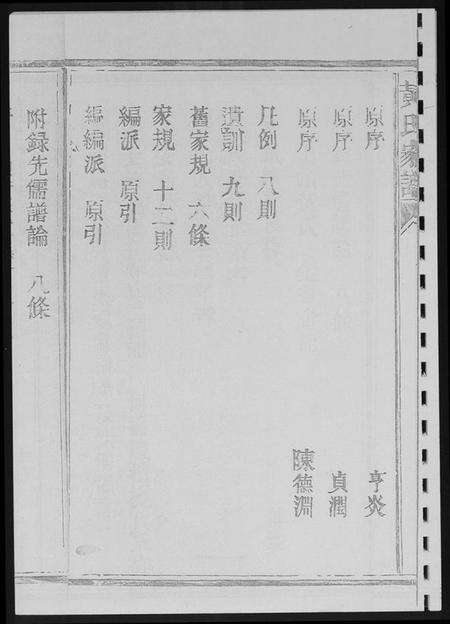 黃氏家譜
原序 亨炎
原序 貞潤
原序 陳德淵
凡例 八則
遺訓 九則
舊家規 六條
家規 十二則
編派 原引
編編派 原引
附錄先儒譜論 八條